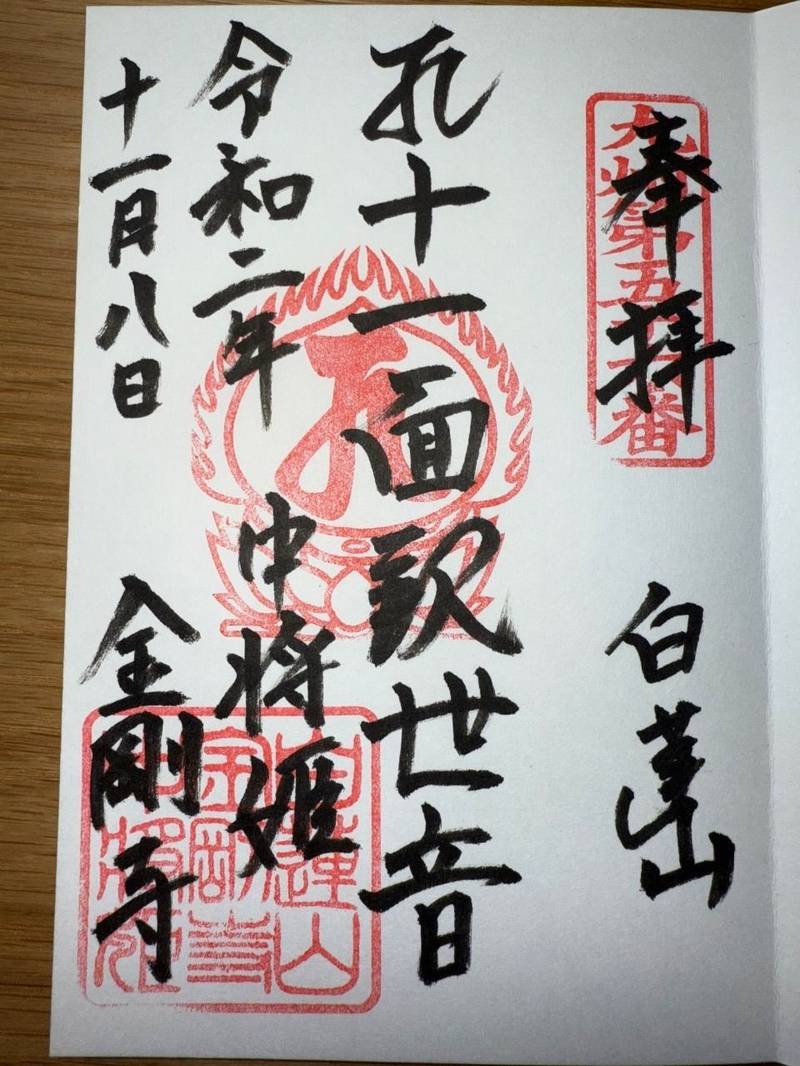 奉拝
九州第五番
白蓮山
十一面観世音
令和二年
中将姫
十一月八日
金剛寺
白蓮山
金剛寺
中将姫